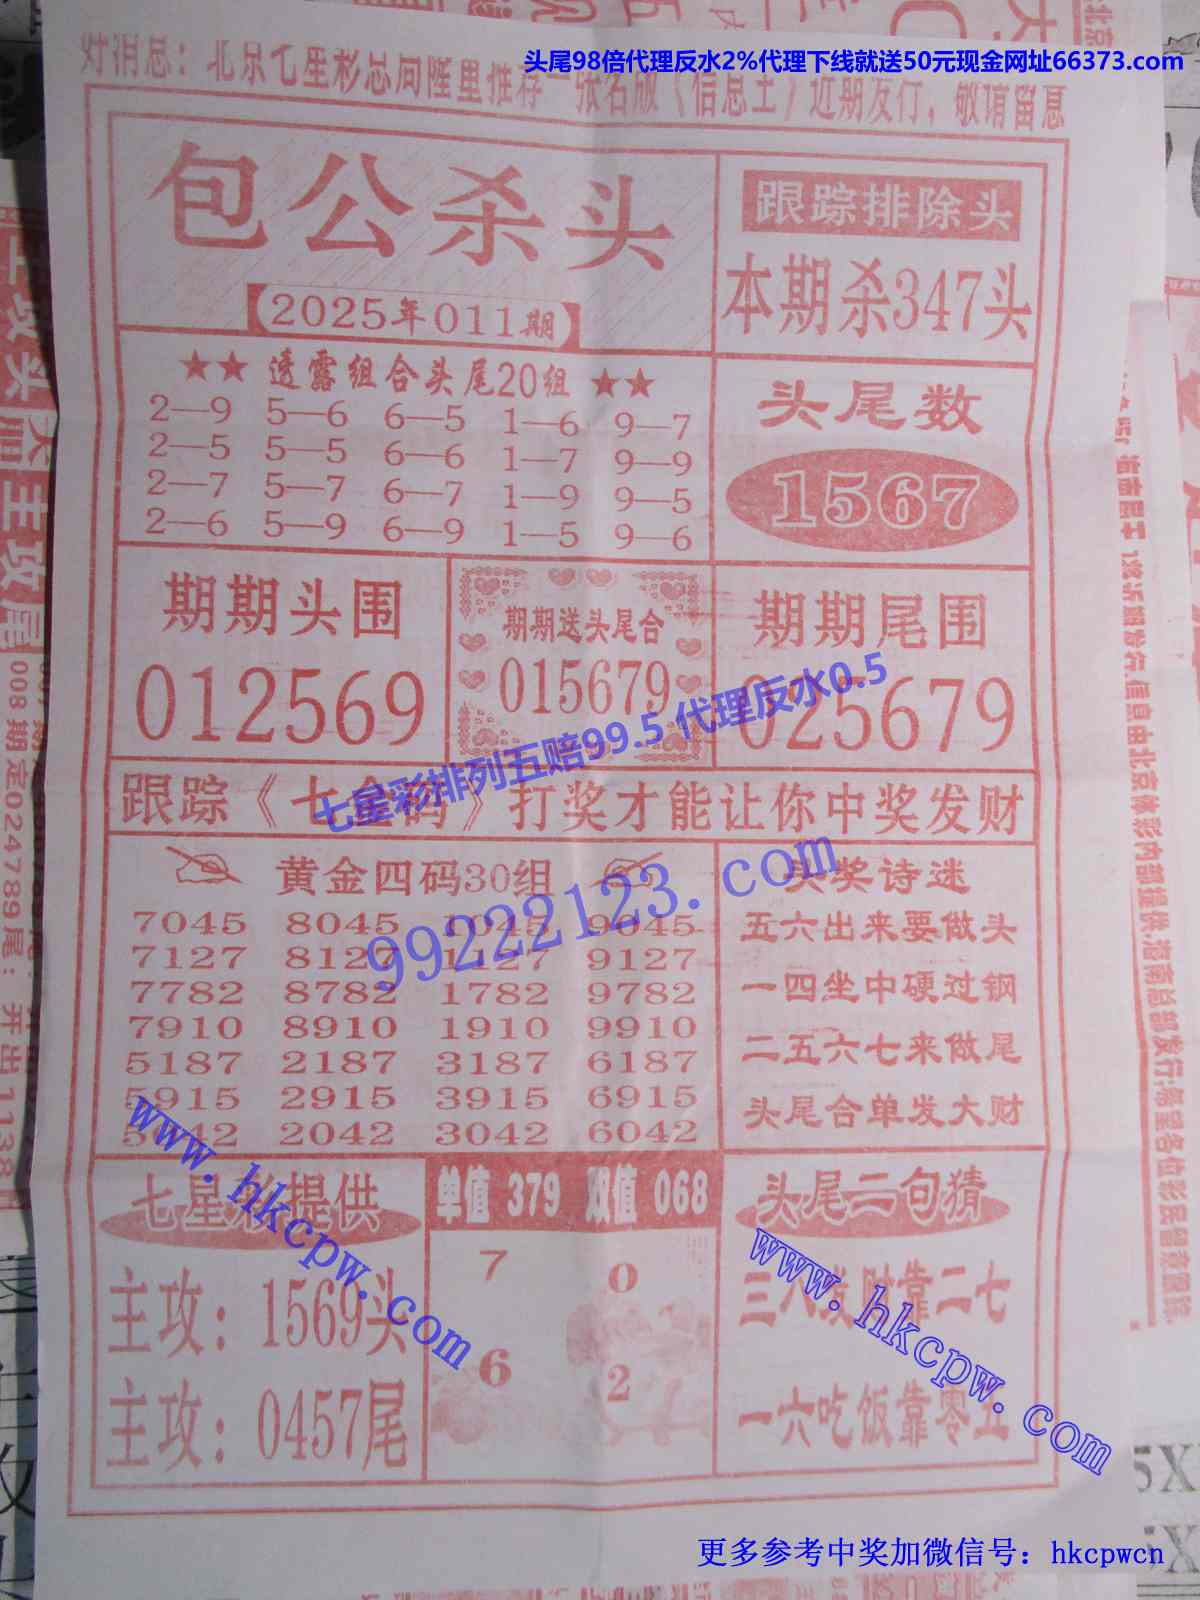 头尾98倍代理反水2%代理下线就送50元现金网址66373.com
好消息：北京七星彩总局隆里推荐一张名版《信息王》近期发行，敬请留意
包公杀头
【2025年011期】
跟踪排除头
本期杀347头
★★ 透露组合头尾20组 ★★
2—9 5—6 6—5 1—6 9—7
2—5 5—5 6—6 1—7 9—9
2—7 5—7 6—7 1—9 9—5
2—6 5—9 6—9 1—5 9—6
头尾数
1567
期期头围
012569
期期送头尾合
015679
期期尾围
025679
七星彩排列五赔99.5 代理反水0.5
跟踪《七星码》打奖才能让你中奖发财
99222123.com
黄金四码30组
7045 8045 1045 9045
7127 8127 1127 9127
7782 8782 1782 9782
7910 8910 1910 9910
5187 2187 3187 6187
5915 2915 3915 6915
5042 2042 3042 6042
头奖诗迷
五六出来要做头
一四坐中硬过钢
二五六七来做尾
头尾合单发大财
七星彩提供
主攻：1569头
主攻：0457尾
www.hkcpw.com
单值 379 双值 068
7
0
6
2
头尾二句猜
三八发财靠二七
一六吃饭靠零五
www.hkcpw.com
更多参考中奖加微信号：hkcpwcn